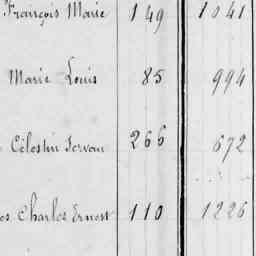 François Marie 149 1041
Marie Louis 85 994
Célestin Servan 266 672
Charles Ernest 110 1226